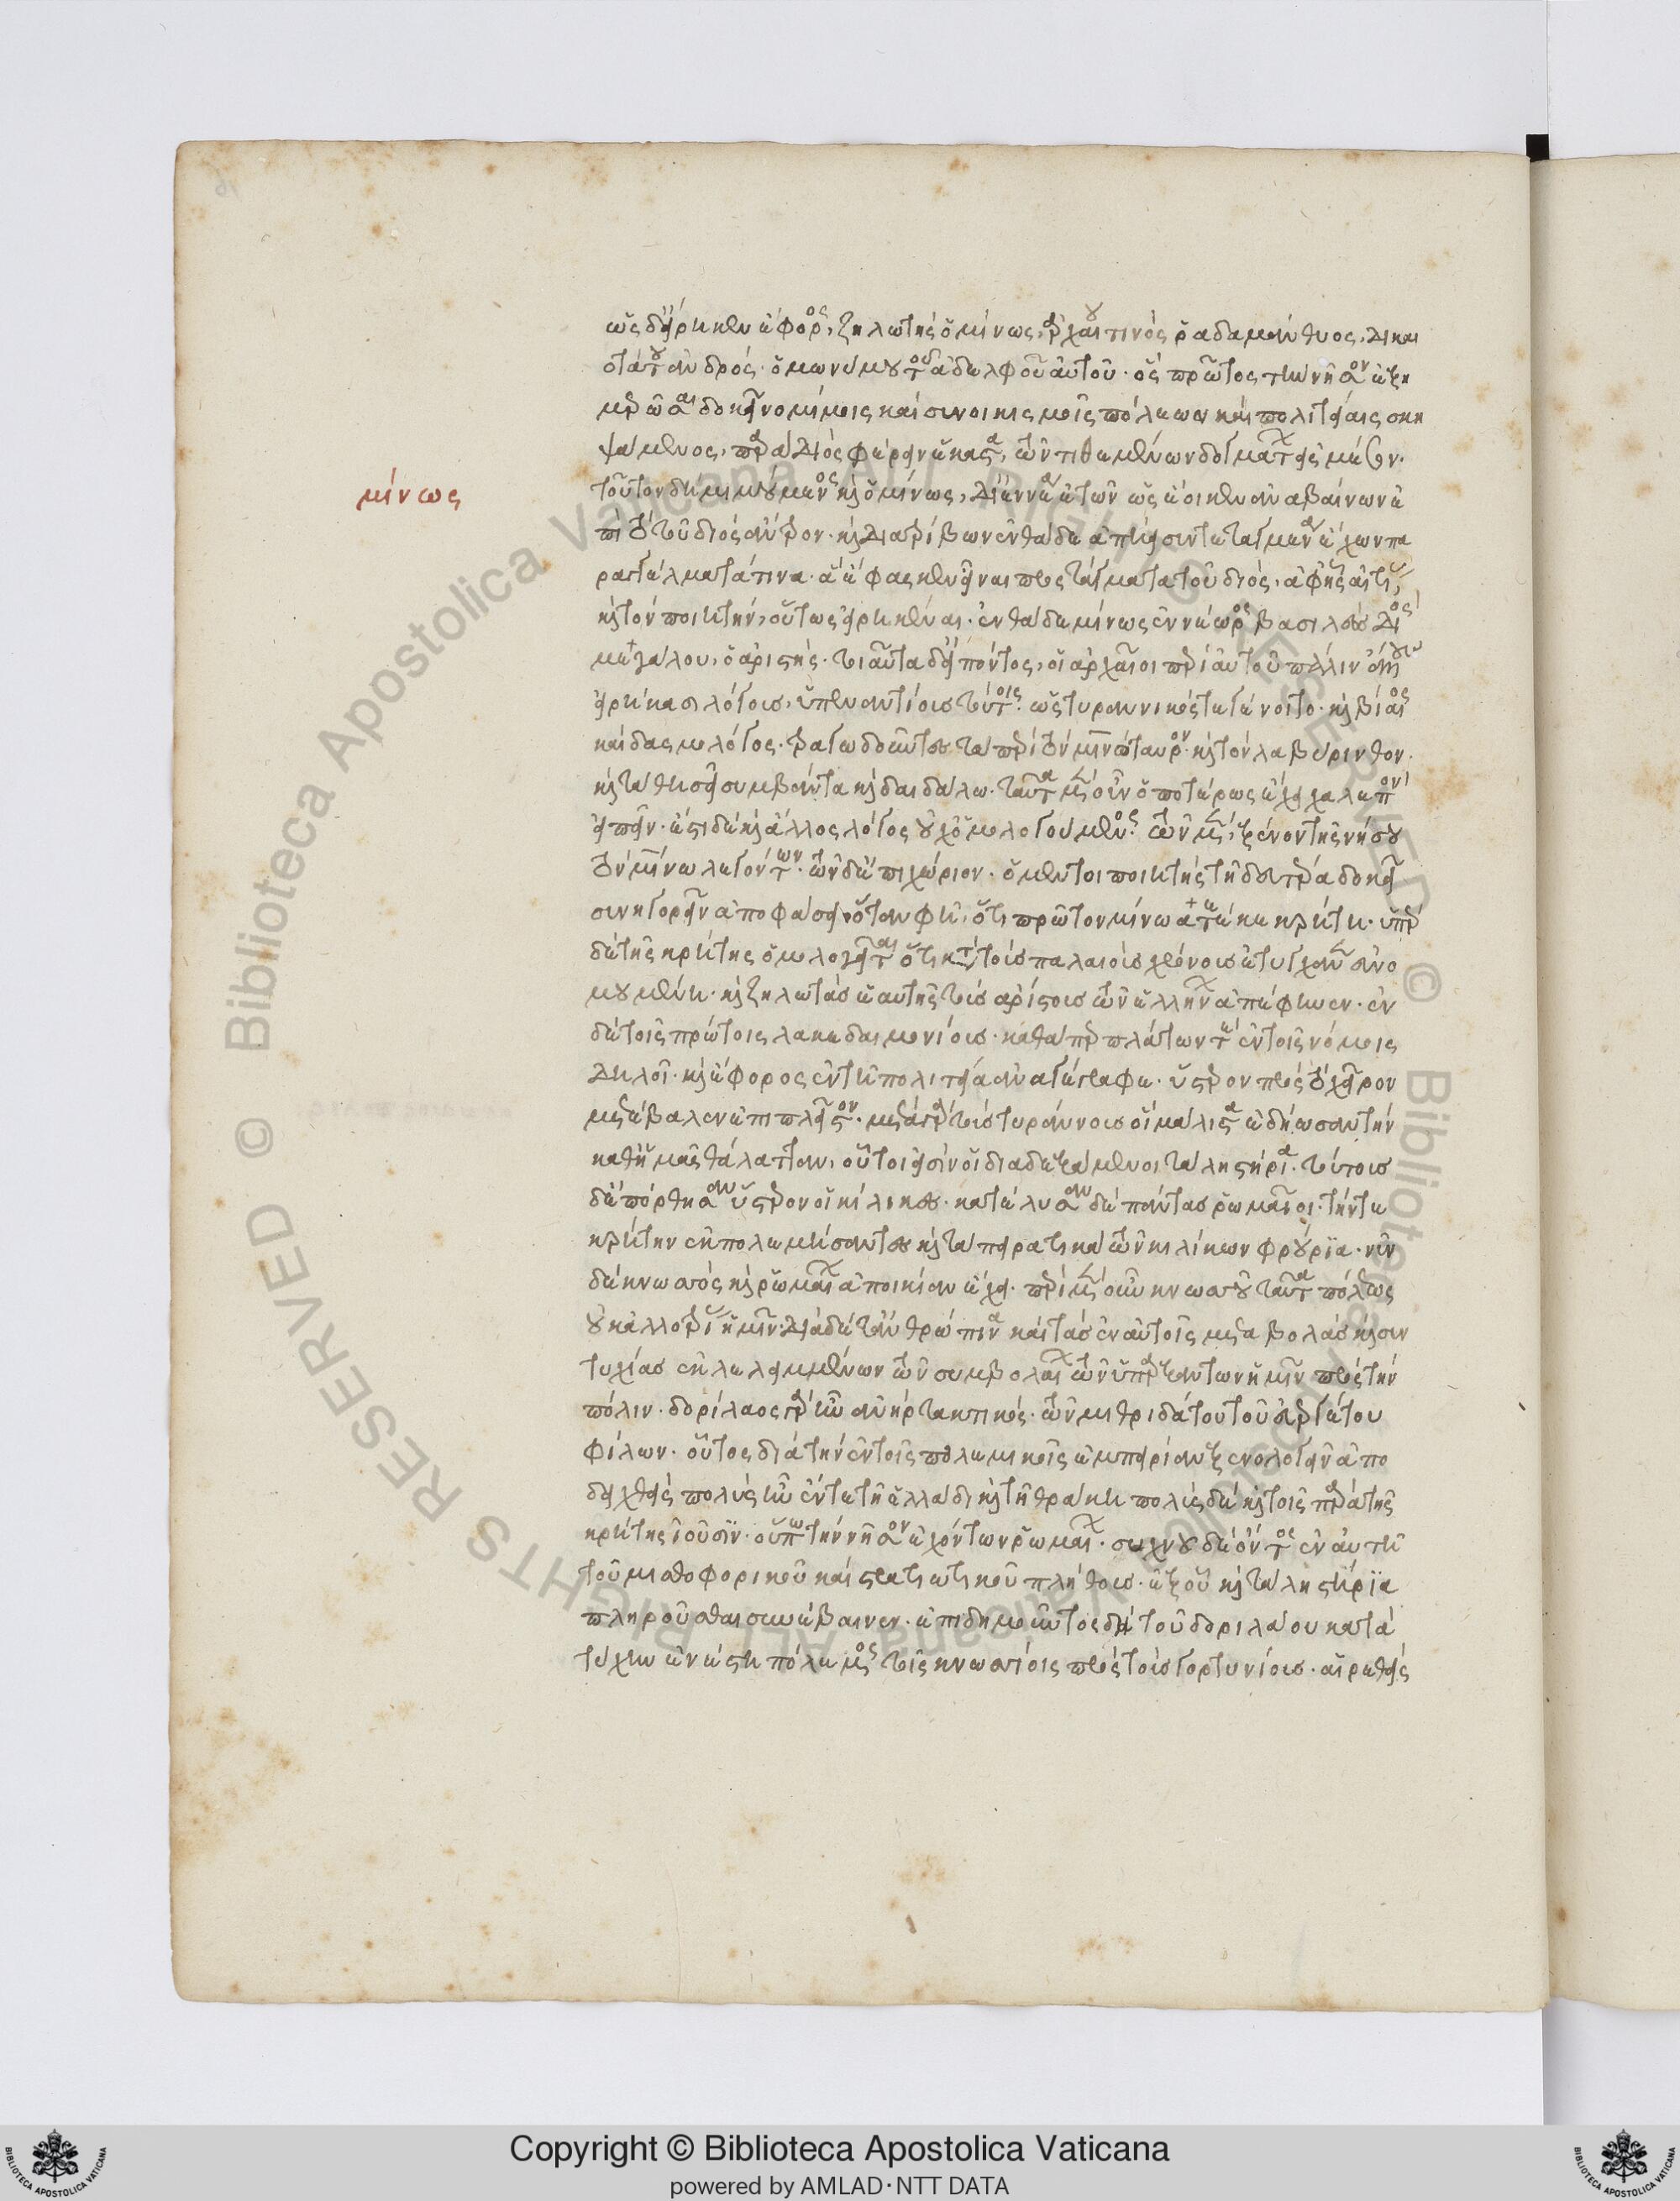 μίνως
ὡς δ' εἴρηκεν ἔφορος, ζηλωτὴς ὁ μίνως, ἀρχαίου τινὸς ῥαδαμάνθυος, δικαι
οτάτου ἀνδρός· ὁμωνύμου τοῦ ἀδελφοῦ αὐτοῦ· ὃς πρῶτος τὴν νῆσον ἐξη
μερῶσαι δοκεῖ νομίμοις καὶ συνοικισμοῖς πόλεων καὶ πολιτείαις σκη
ψάμενος, παρὰ διὸς φέρειν ἕκαστα, τῶν τιθεμένων δογμάτων εἰς μέσον·
τοῦτον δὴ μιμούμενος καὶ ὁ μίνως, δι' ἐννέα ἐτῶν ὡς ἔοικεν ἀναβαίνων ἐ
πὶ τὸ τοῦ διὸς ἄντρον· καὶ διατρίβων ἐνθάδε ἀπῄει συντεταγμένα ἔχων πα
ραγγέλματά τινα· ἃ ἔφασκεν εἶναι προστάγματα τοῦ διός, ἀφ' ἧς αἰτίας,
καὶ τὸν ποιητὴν, οὕτως εἰρηκέναι· ἐνθάδε μίνως ἐννέωρος βασίλευε διὸς
μεγάλου, ὀαριστής· τοιαῦτα δ' εἰπόντος, οἱ ἀρχαῖοι περὶ αὐτοῦ πάλιν ἄλλους
εἰρήκασι λόγους, ὑπεναντίους τούτοις· ὡς τυραννικός τε γένοιτο· καὶ βίαιος
καὶ δασμολόγος· τραγῳδοῦντες τὰ περὶ τὸν μινώταυρον· καὶ τὸν λαβύρινθον·
καὶ τὰ θησεῖ συμβάντα καὶ δαιδάλῳ· ταῦτα μὲν οὖν ὁποτέρως ἔχει χαλεπὸν
εἰπεῖν· ἔστι δὲ καὶ ἄλλος λόγος οὐχ ὁμολογούμενος· τῶν μὲν, ξένον τῆς νήσου
τὸν μίνω λεγόντων· τῶν δ' ἐπιχώριον· ὁ μέντοι ποιητὴς τῇ δευτέρᾳ δοκεῖ
συνηγορεῖν ἀποφάσει· ὅταν φῇ, ὅτι πρῶτον μίνωα τέκε κρήτῃ· ὑπὲρ
δὲ τῆς κρήτης ὁμολογεῖται ὅτι κατὰ τοὺς παλαιοὺς χρόνους ἐτύγχανεν εὐνο
μουμένη· καὶ ζηλωτὰς ἑαυτῆς τοὺς ἀρίστους τῶν ἑλλήνων ἀπέφηνεν· ἐν
δὲ τοῖς πρώτοις λακεδαιμονίους· καθάπερ πλάτων τὲ ἐν τοῖς νόμοις
δηλοῖ· καὶ ἔφορος ἐν τῇ πολιτείᾳ ἀναγέγραφε· ὕστερον πρὸς τὸ χεῖρον
μετέβαλεν ἐπὶ πλεῖστον· μετὰ γὰρ τοὺς τυράννους οἳ μάλιστα ἐδῄωσαν τὴν
καθ' ἡμᾶς θάλατταν, οὗτοι εἰσὶν οἱ διαδεξάμενοι τὰ λῃστήρια· τούτους
δ' ἐπόρθησαν ὕστερον οἱ κίλικες· κατέλυσαν δὲ πάντας ῥωμαῖοι· τήν τε
κρήτην ἐκπολεμήσαντες καὶ τὰ πειρατικὰ τῶν κιλίκων φρούρια· νῦν
δὲ κνωσὸς καὶ ῥωμαίων ἀποικίαν ἔχει· περὶ μὲν οὖν κνωσοῦ ταῦτα πόλεως
οὐκ ἀλλοτρίας ἡμῖν· διὰ δὲ τἀνθρώπινα καὶ τὰς ἐν αὐτοῖς μεταβολὰς καὶ συν
τυχίας ἐκλελειμμένων τῶν συμβολαίων τῶν ὑπαρξάντων ἡμῖν πρὸς τὴν
πόλιν· δορίλαος γὰρ ἦν ἀνὴρ τακτικός· τῶν μιθριδάτου τοῦ εὐεργέτου
φίλων· οὗτος διὰ τὴν ἐν τοῖς πολεμικοῖς ἐμπειρίαν ξενολογεῖν ἀπο
δειχθεὶς πολὺς ἦν ἔν τε τῇ ἑλλάδι καὶ τῇ θράκῃ πολὺς δὲ καὶ τοῖς παρὰ τῆς
κρήτης ἰοῦσιν· οὔπω τὴν νῆσον ἐχόντων ῥωμαίων· συχνοῦ δὲ ὄντος ἐν αὐτῇ
τοῦ μισθοφορικοῦ καὶ στρατιωτικοῦ πλήθους· ἐξ οὗ καὶ τὰ λῃστήρια
πληροῦσθαι συνέβαινεν· ἐπιδημοῦντος δὲ τοῦ δοριλάου κατὰ
τύχην ἐνέστη πόλεμος τοῖς κνωσίοις πρὸς τοὺς γορτυνίους· αἱρεθεὶς